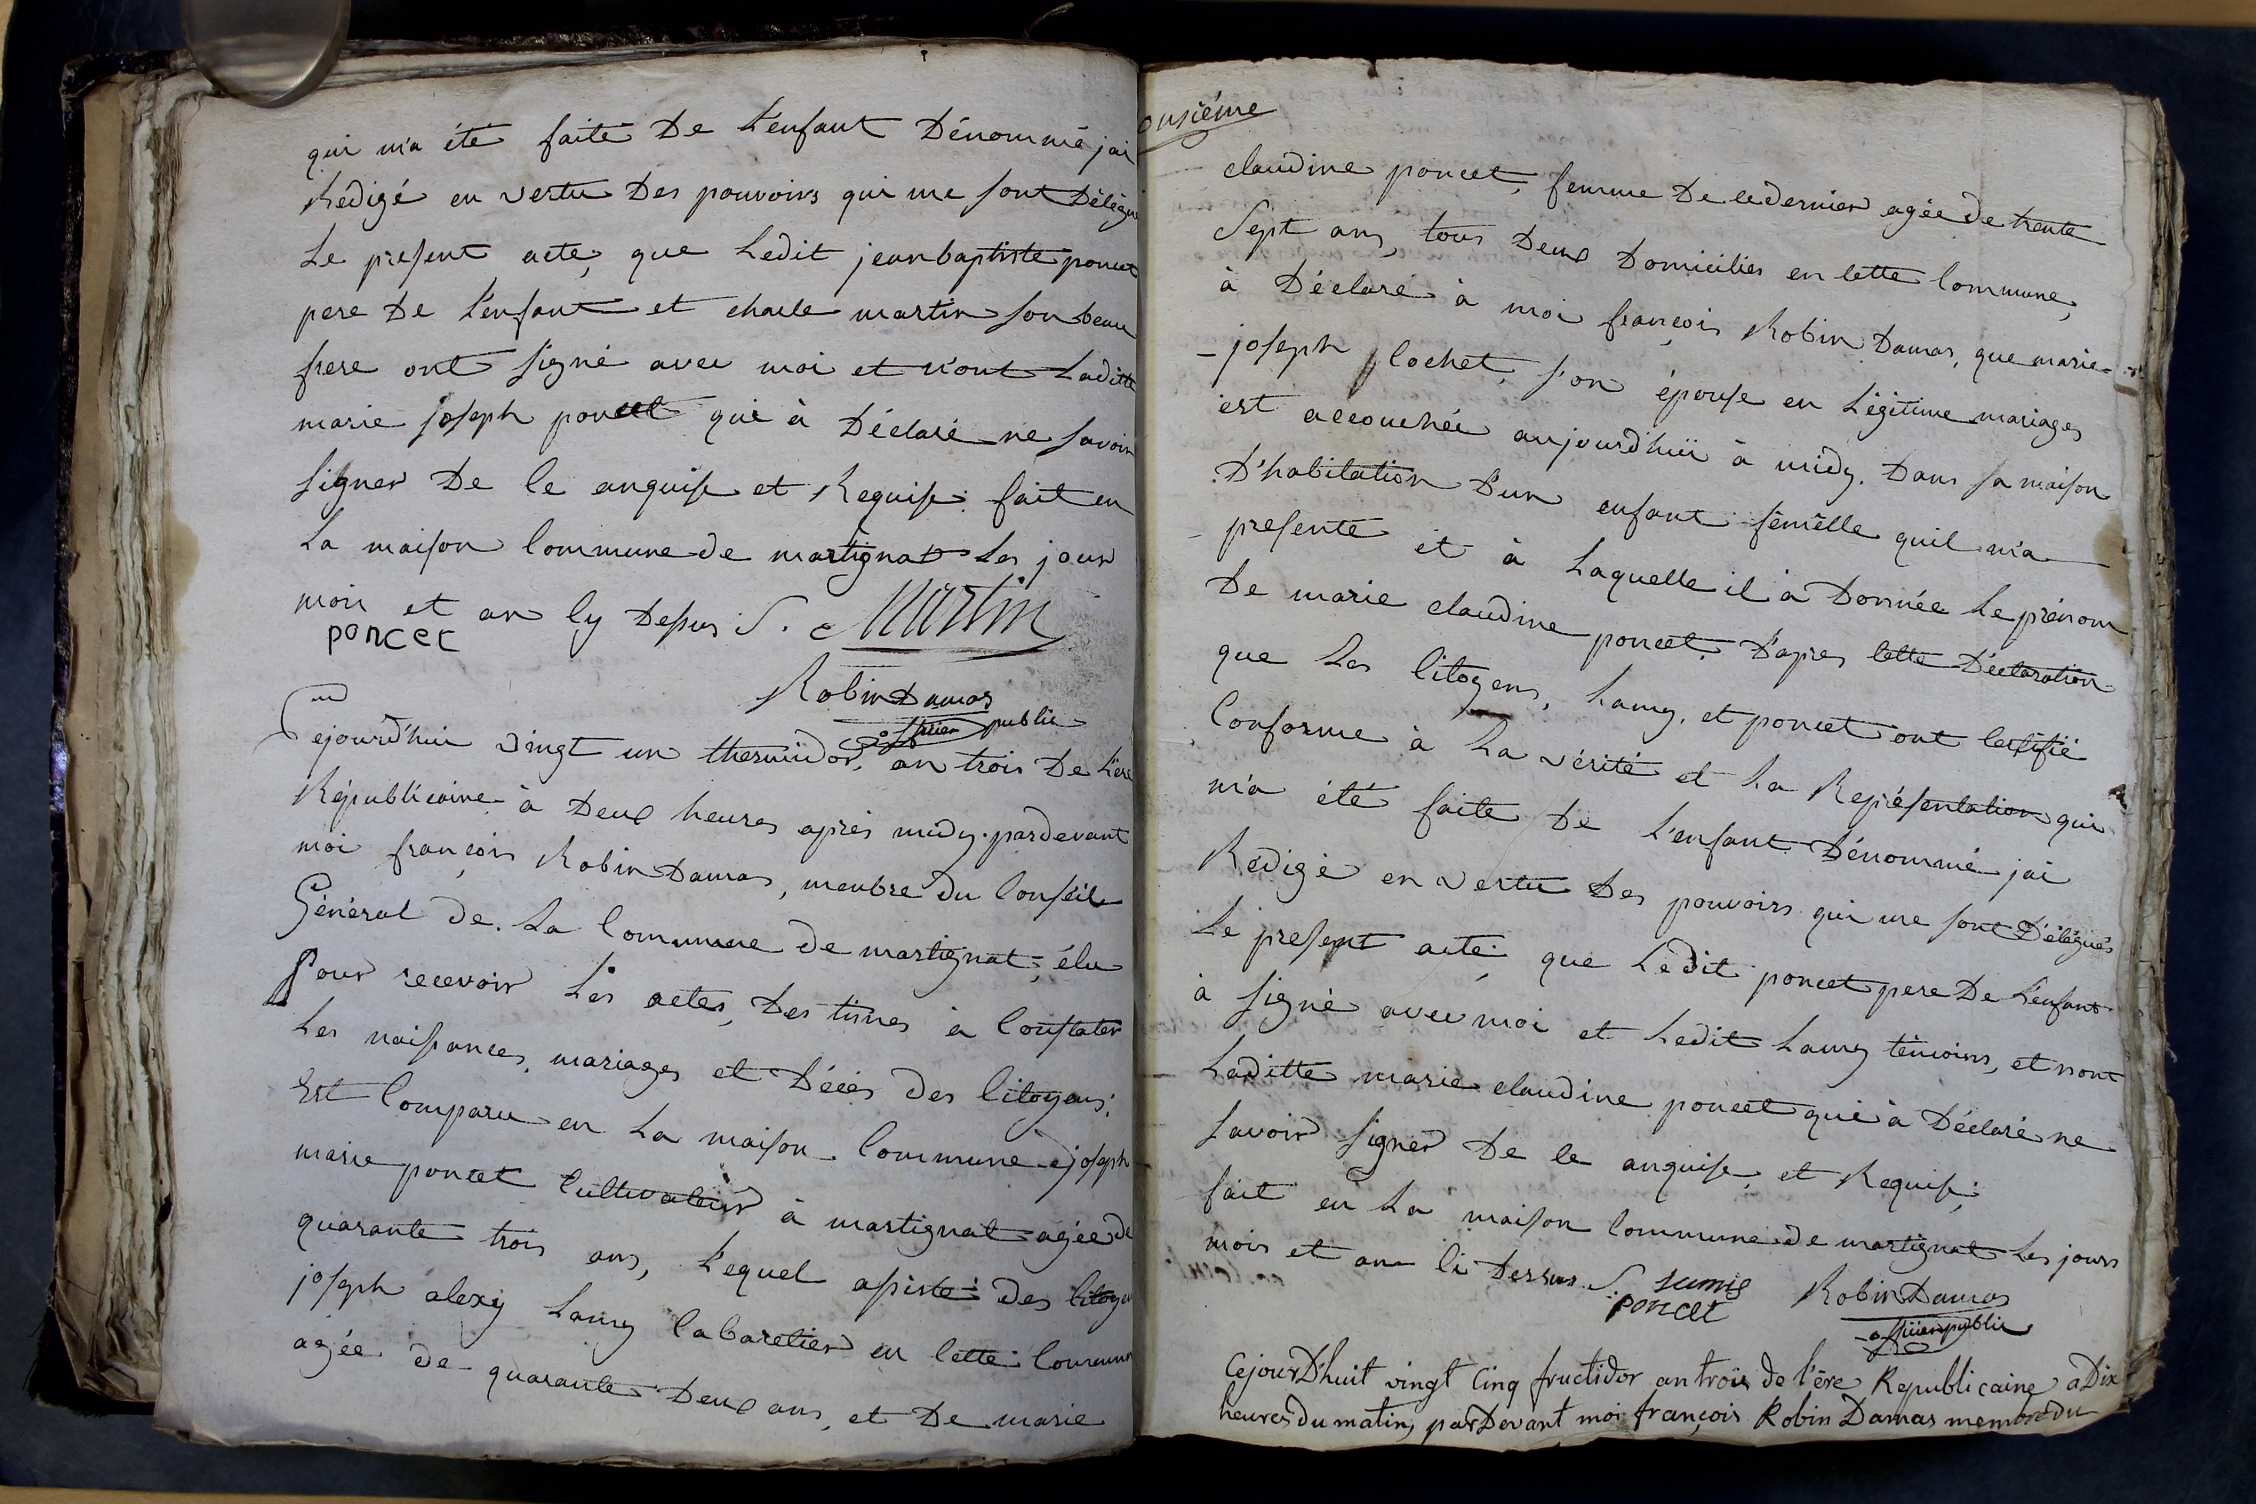 qui m'a été faite De L'enfant Dénommé jai
Rédigé en vertu Des pouvoirs qui me sont Délégu
Le present acte, que Ledit jeanbaptiste poncet
pere De L'enfant et charle martin son beau
frere ont signé avec moi et n'ont Laditte
marie joseph poncet qui à Déclaré ne savoir
signer De ce anquise et Requise. fait en
La maison Commune de martignat Les jour
mois et an Cy Dessus S. Martin
poncet
Robin Damas
officier public
Cejourd'hui vingt un thermidor, an trois De L'ere
Républicaine à Deux heures après midy. pardevant
moi françois Robin Damas, menbre Du Conseil
Général de La Commune de martignat; élu
Pour recevoir Les actes, Des tinés à Constater
Les naissances, mariages et Décès Des Citoyens;
Est Comparu en La maison Commune joseph
marie poncet Cultivateur à martignat agée de
quarante trois ans, Lequel assisté Des Citoyen
joseph alexy Lamy Cabaretier en Cette Commune
agée de quarante Deux ans, et De marie
onsiéme
claudine poncet, femme De cedernier agée de trente
Sept ans, tous Deux Domiciliés en Cette Commune,
à Déclaré à moi françois Robin Damas, que marie
joseph Cochet, s'on épouse en Légitime mariages
est accouchée aujourd'huit à midy. Dans sa maison
D'habitation D'un enfant fémélle quil m'a
presenté et à Laquelle il à Donnée Le prénom
De marie claudine poncet. D'apres Cette Déclaration
que Les Citoyens, Lamy, et poncet ont Certifié
Conforme à La vérité et La Représentation qui
m'a été faite De L'enfant Dénommé jai
Redigé en vertu Des pouvoirs qui me sont Délégués
Le present acte que Ledit poncet pere De L'enfant
à signé avec moi et Ledit Lamy témoins, et nont
Laditte marie claudine poncet qui à Déclaré ne
savoir signer De ce anquise, et Requise;
fait en La maison Commune de martignat Les jours
mois et an Ci Dessus. S.
poncet Robin Damas
officier public
CejourD'huit vingt Cinq fructidor an trois de l'ére Republicaine a Dix
heures du matin, parDevant moi françois Robin Damas membre du